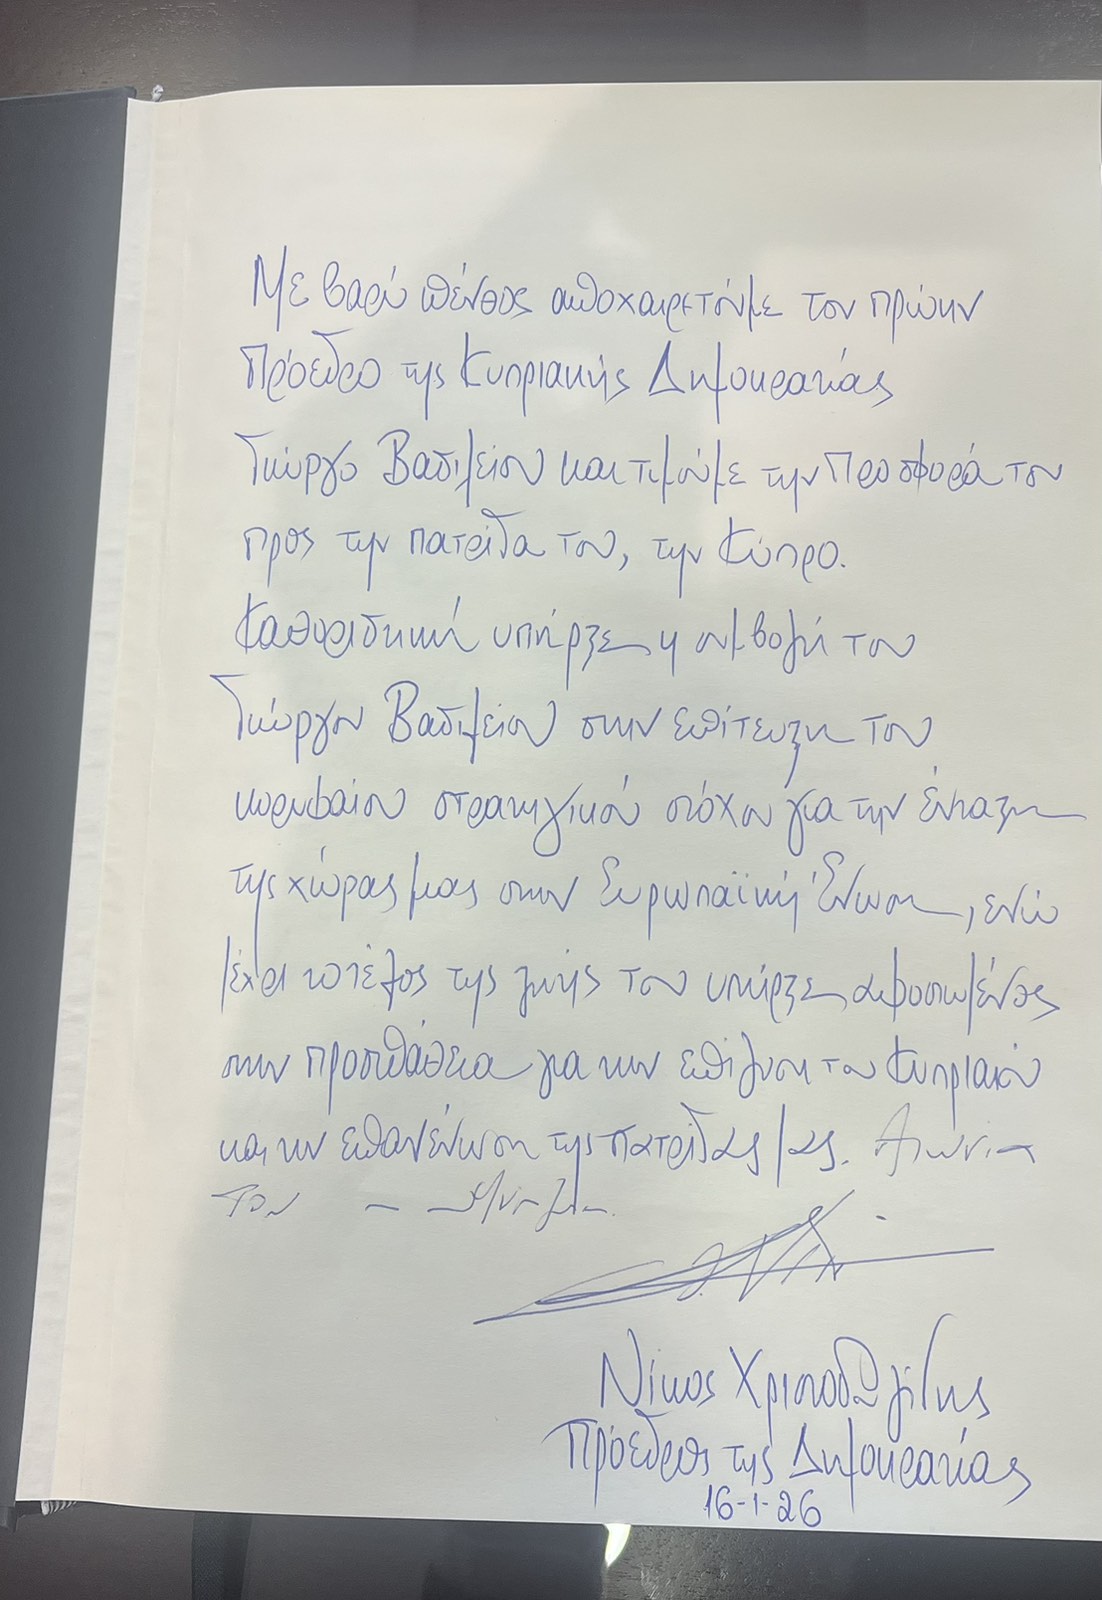 Με βαρύ πένθος αποχαιρετούμε τον πρώην
Πρόεδρο της Κυπριακής Δημοκρατίας
Γιώργο Βασιλείου και τιμούμε την προσφορά του
προς την πατρίδα του, την Κύπρο.
Καθοριστική υπήρξε η συμβολή του
Γιώργου Βασιλείου στην επίτευξη του
κορυφαίου στρατηγικού στόχου για την ένταξη
της χώρας μας στην Ευρωπαϊκή Ένωση, ενώ
μέχρι το τέλος της ζωής του υπήρξε αφοσιωμένος
στην προσπάθεια για την επίλυση του Κυπριακού
και την επανένωση της πατρίδας μας. Αιωνία
του η μνήμη.
Νίκος Χριστοδουλίδης
Πρόεδρος της Δημοκρατίας
16-1-26